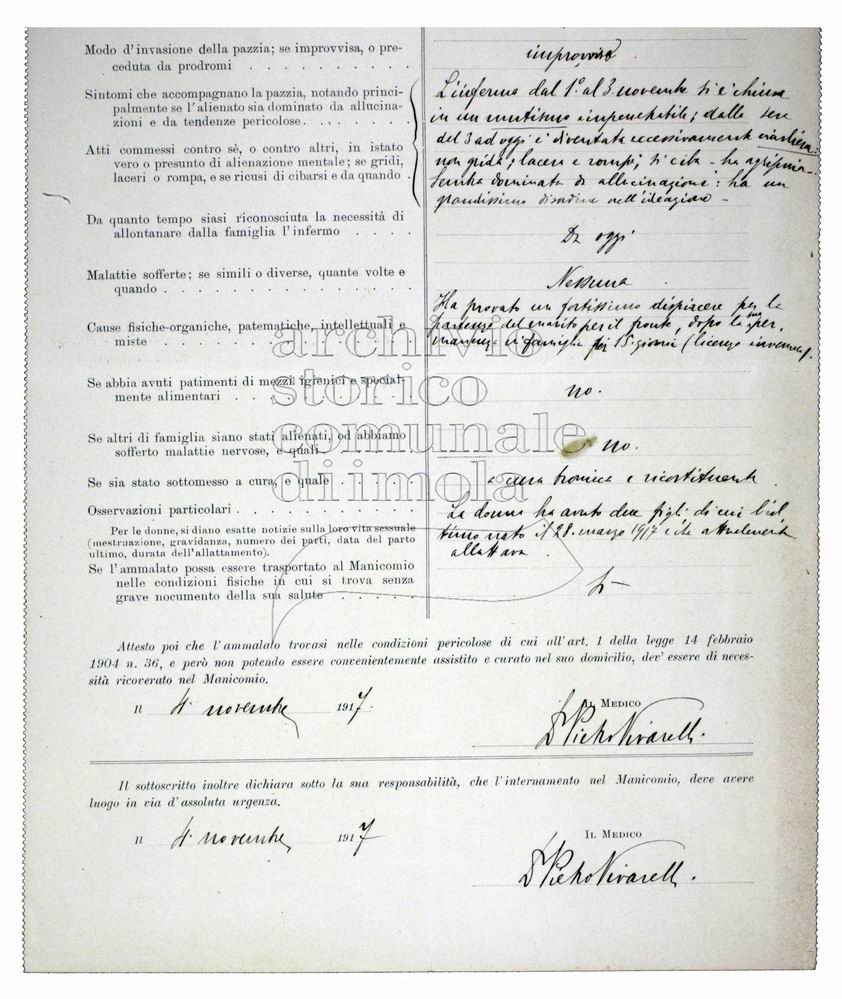 Modo d'invasione della pazzia; se improvvisa, o pre-
ceduta da prodromi . . . . . . . . . .
improvvisa
Sintomi che accompagnano la pazzia, notando princi-
palmente se l'alienato sia dominato da allucina-
zioni e da tendenze pericolose. . . . . . . .
Atti commessi contro sè, o contro altri, in istato
vero o presunto di alienazione mentale; se gridi,
laceri o rompa, e se ricusi di cibarsi e da quando .
L'inferma dal 1° al 3 novembre si è chiusa
in un mutismo impenetrabile; dalla sera
del 3 ad oggi è diventata eccessivamente ciarliera:
non grida; lacera e rompe; si ciba - ha agripnia -
Sembra dominata da allucinazioni: ha un
grandissimo disordine nell'ideazione -
Da quanto tempo siasi riconosciuta la necessità di
allontanare dalla famiglia l'infermo . . . .
Da oggi
Malattie sofferte; se simili o diverse, quante volte e
quando . . . . . . . . . . . . . . .
Nessuna
Cause fisiche-organiche, patematiche, intellettuali e
miste . . . . . . . . . . . . . . .
Ha provato un fortissimo dispiacere per la
partenza del marito per il fronte, dopo la sua per,
manenza in famiglia per 15 giorni (licenza invernale).
Se abbia avuti patimenti di mezzi igienici e special-
mente alimentari . . . . . . . . . . .
no.
Se altri di famiglia siano stati alienati, od abbiamo
sofferto malattie nervose, e quali
no.
Se sia stato sottomesso a cura, e quale . . . . .
a cura bromica e ricostituente
Osservazioni particolari . . . . . . . . . . .
Per le donne, si diano esatte notizie sulla loro vita sessuale
(mestruazione, gravidanza, numero dei parti, data del parto
ultimo, durata dell'allattamento).
La donna ha avuto due figli di cui l'ul
timo nato il 28 marzo 1917 e che attualmente
allattava.
Se l'ammalato possa essere trasportato al Manicomio
nelle condizioni fisiche in cui si trova senza
grave nocumento della sua salute . . . . .
Si -
Attesto poi che l'ammalato trovasi nelle condizioni pericolose di cui all'art. 1 della legge 14 febbraio
1904 n. 36, e però non potendo essere convenientemente assistito e curato nel suo domicilio, dev' essere di neces-
sità ricoverato nel Manicomio.
Il 4 novembre 1917.
Il Medico
Dr Pietro Vivarelli.
Il sottoscritto inoltre dichiara sotto la sua responsabilità, che l'internamento nel Manicomio, deve avere
luogo in via d'assoluta urgenza.
Il 4 novembre 1917
Il Medico
Dr Pietro Vivarelli.
archivio
storico
comunale
di imola